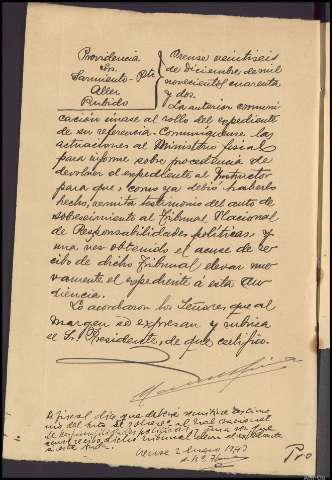 Providencia
Sres.
Sarmiento-Pte
Aller
Pubido
Orense veintiseis
de diciembre de mil
novecientos cuarenta
y dos.
La anterior comuni-
cación únase al rollo del expediente
de su referencia. Comuníquense las
actuaciones al Ministerio fiscal
para informe sobre procedencia de
devolver el expediente al Instructor
para que, como ya debió haberlo
hecho, remita testimonio del auto de
sobreseimiento al Tribunal Nacional
de Responsabilidades políticas, y
una vez obtenido el acuse de re-
cibo de dicho Tribunal elevar nue-
vamente el expediente á esta Au-
diencia.
Lo acordaron los Señores, que al
margen se expresan y rubrica
el Sr. Presidente, de que certifico.
El fiscal dice que debera remitirse testimo
nio del auto de sobres. al Tral Nacional
de Responsabilidades políticas y una vez que
acuse recibo dicho Tribunal elevar el expediente
a esta Auda.
Orense 2 Enero 1943
Pro